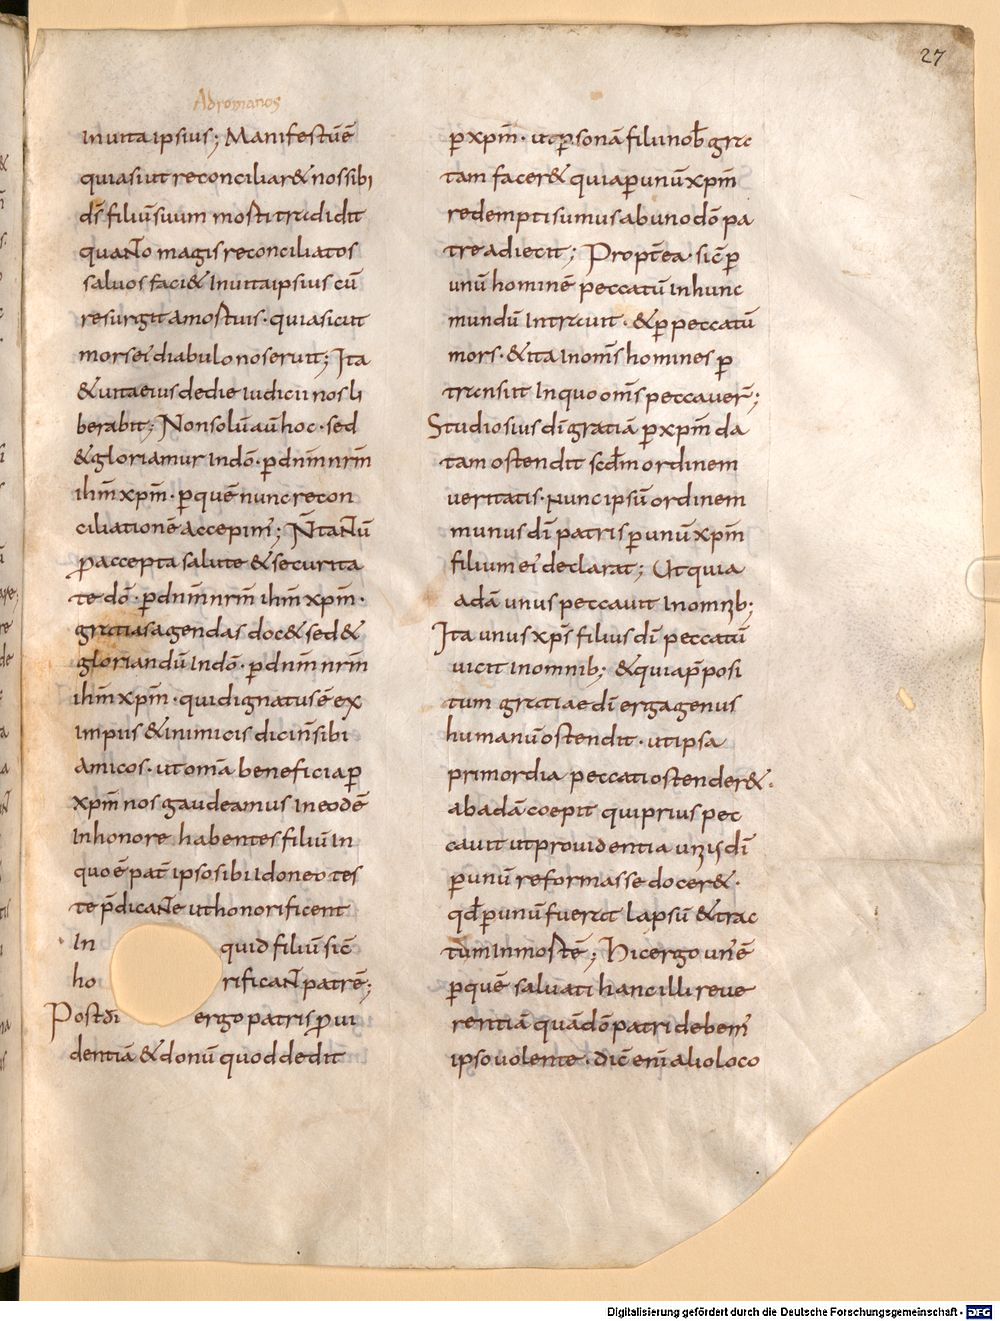 27
Adromanos
Inuita ipsius; Manifestū ē
quia si ut reconciliar& nos sibi
dš filiū suum morti tradidit
quanto magis reconciliatos
saluos faci& In uita ipsius cū
resurgit amortuis · quia sicut
mors ei diabulo nos eruit; Ita
& uita eius de die Iudicii nos li
berabit; Non solū aū hoc · sed
& gloriamur In dō · p̱ dn̄m nr̄m
ih̄m xp̄m · p̱ quē nunc recon
ciliationē accepim̄; N̄ tantū
p̱ accepta salute & securita
te dō · p̱ dn̄m nr̄m ih̄m xp̄m ·
gratias agendas doc& sed &
gloriandū In dō · p̱ dn̄m nr̄m
ih̄m xp̄m · qui dignatus ē ex
Impiis & inimicis dicin̄ sibi
amicos · ut om̄a beneficia p̱
xp̄m nos gaudeamus In eodē
In honore habentes filiū In
quo ē pat̄ ipso sibi Idoneo tes
te p̄dicante ut honorificent
In quid filiū sic̄
ho rificant patrē;
Post dī ergo patris p̱ui
dentiā & donū quod dedit
p̱ xp̄m · ut p̱sonā filii nob̄ gra
tam facer& quia p̱ unū xp̄m
redempti sumus ab uno dō pa
tre adiecit; Propt̄ea · sic̄ p̱
unū hominē peccatū In hunc
mundū Intrauit · & p̱ peccatū
mors · & ita In om̄s homines p̱
transiit In quo om̄s peccauer̄;
Studiosius dī gratiā p̱ xp̄m da
tam ostendit scd̄m ordinem
ueritatis · nunc ipsū ordinem
munus dī patris p̱ unū xp̄m
filium ei declarat; Ut quia
adā unus peccauit In omnib;
Ita unus xp̄s filius dī peccatū
uicit In omnib; & quia p̄posi
tum gratiae dī erga genus
humanū ostendit · ut ipsa
primordia peccati ostender& ·
ab adā coepit qui prius pec
cauit ut prouidentia unis dī
p̱ unū reformasse docer& ·
qd̄ p̱ unū fuerat lapsū & trac
tum In mortē; Hic ergo un̄ ē
p̱ quē saluati hanc illi reue
rentiā quā dō patri debem̄
ipso uolente · dic̄ eni alio loco
Digitalisierung gefördert durch die Deutsche Forschungsgemeinschaft - DFG